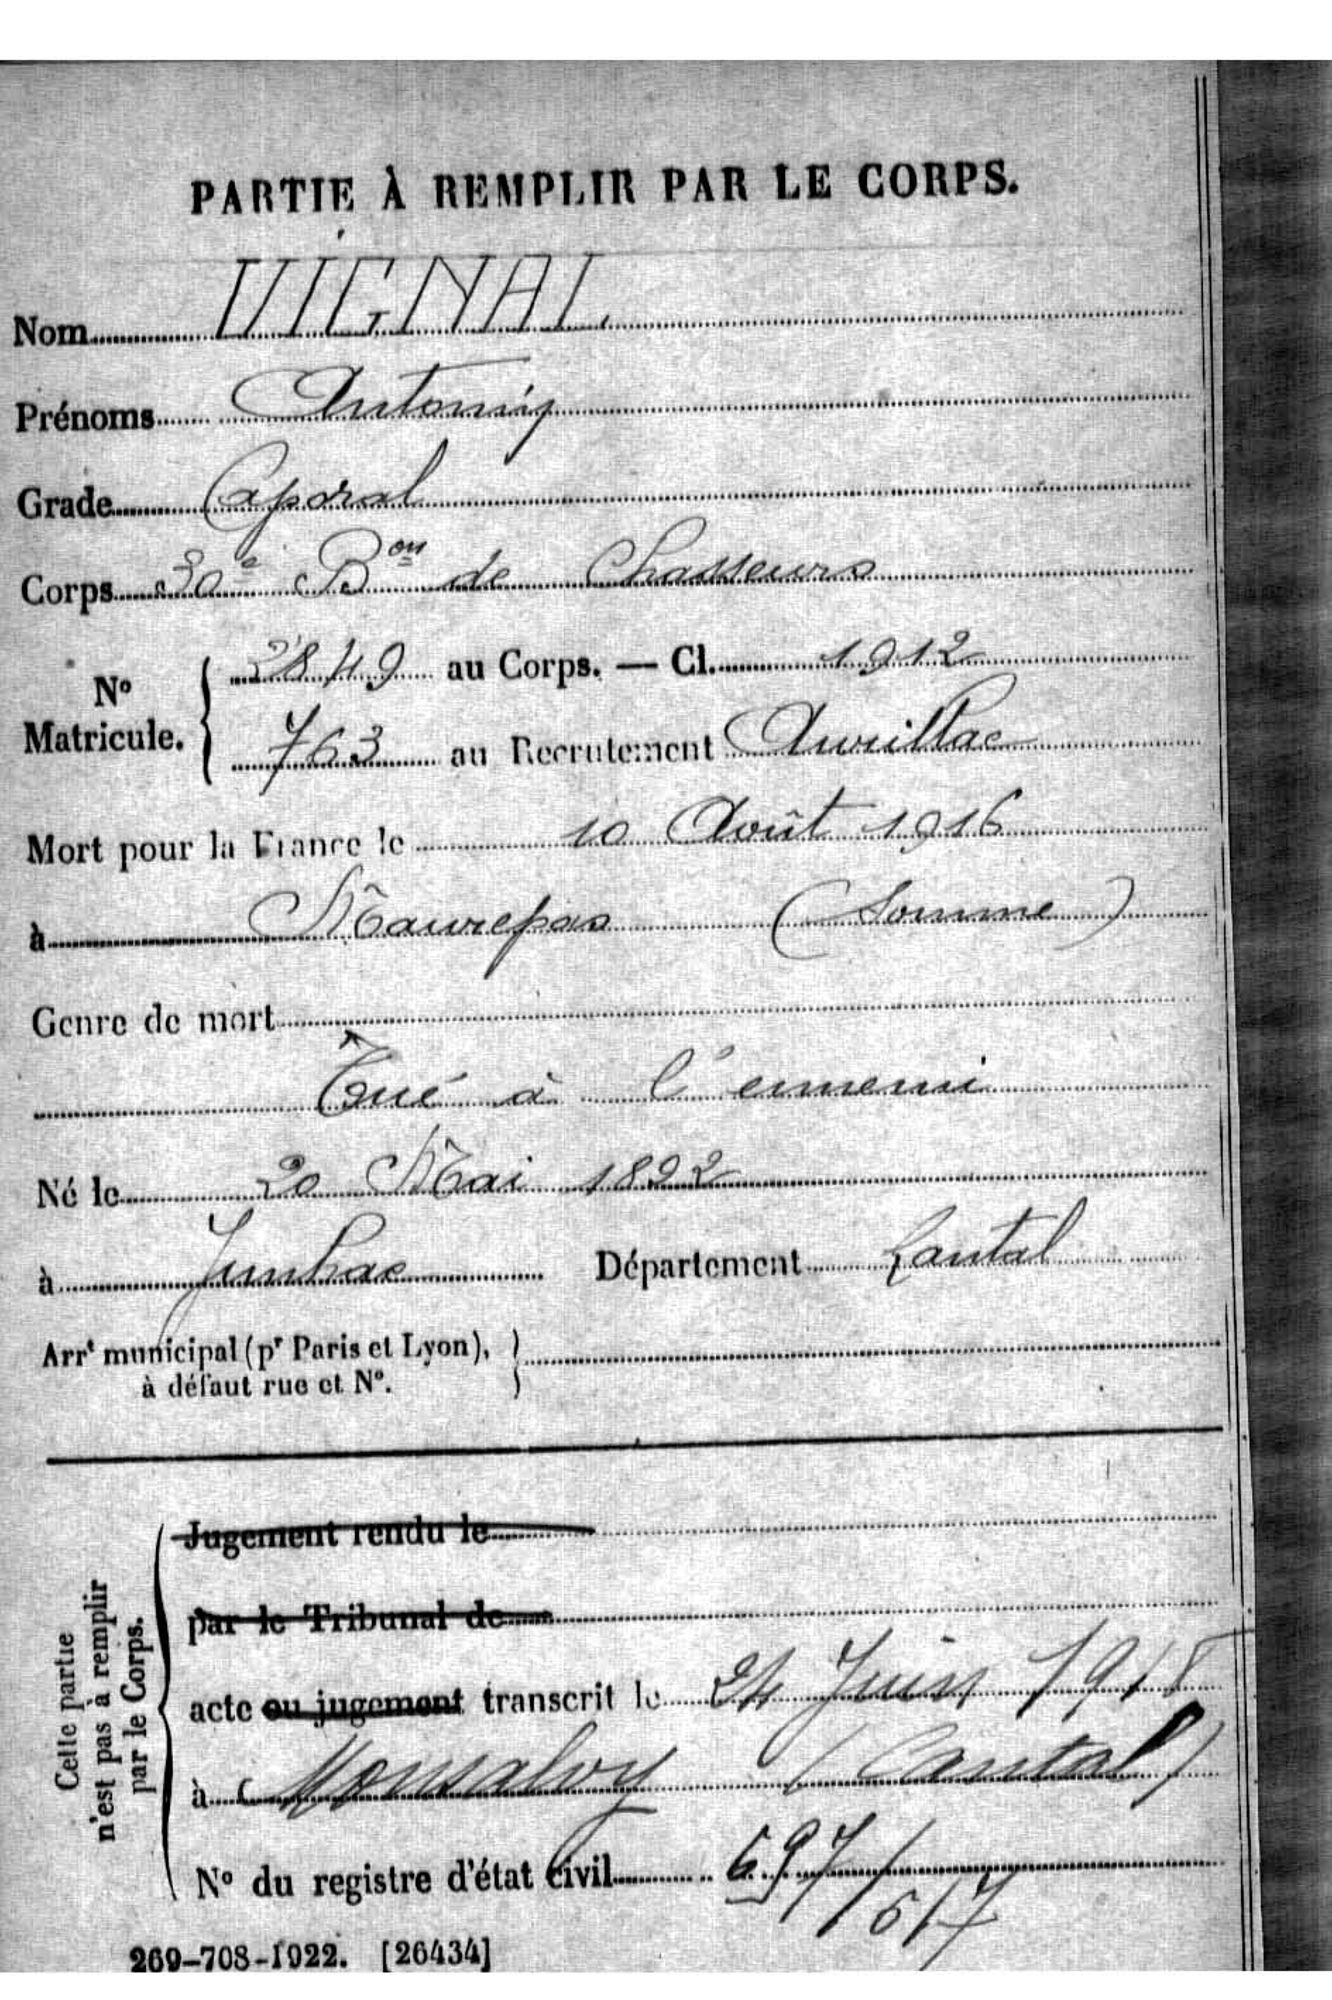 PARTIE À REMPLIR PAR LE CORPS.
Nom VIGNAL
Prénoms Antonin
Grade Caporal
Corps 30e Bon de Chasseurs
No Matricule. { 2849 au Corps. — Cl. 1912
763 au Recrutement Aurillac
Mort pour la France le 10 Août 1916
à Maurepas (Somme)
Genre de mort
Tué à l'ennemi
Né le 20 Mai 1892
à Junhac Département Cantal
Arrt municipal (pr Paris et Lyon), }
à défaut rue et No.
Cette partie
n'est pas à remplir
par le Corps.
Jugement rendu le
par le Tribunal de
acte ou jugement transcrit le 24 Juin 1918
à Monsalvy (Cantal)
No du registre d'état civil 697/617
269-708-1922. [26434]